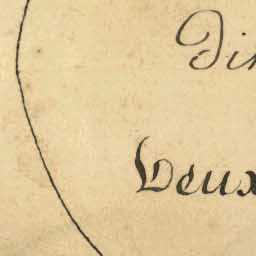 Din
Deux